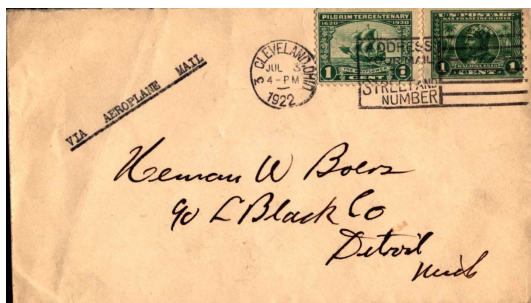 PILGRIM TERCENTENARY
1620 1920
1 CENT
U.S. POSTAGE
SAN FRANCISCO, 1915
1 CENT 1
CLEVELAND, OHIO
3
JUL 3
4-PM
1922
ADDRESS
YOUR MAIL
TO
STREET AND
NUMBER
VIA AEROPLANE MAIL
Heman W
℅ L Black Co
Detroit
Mich